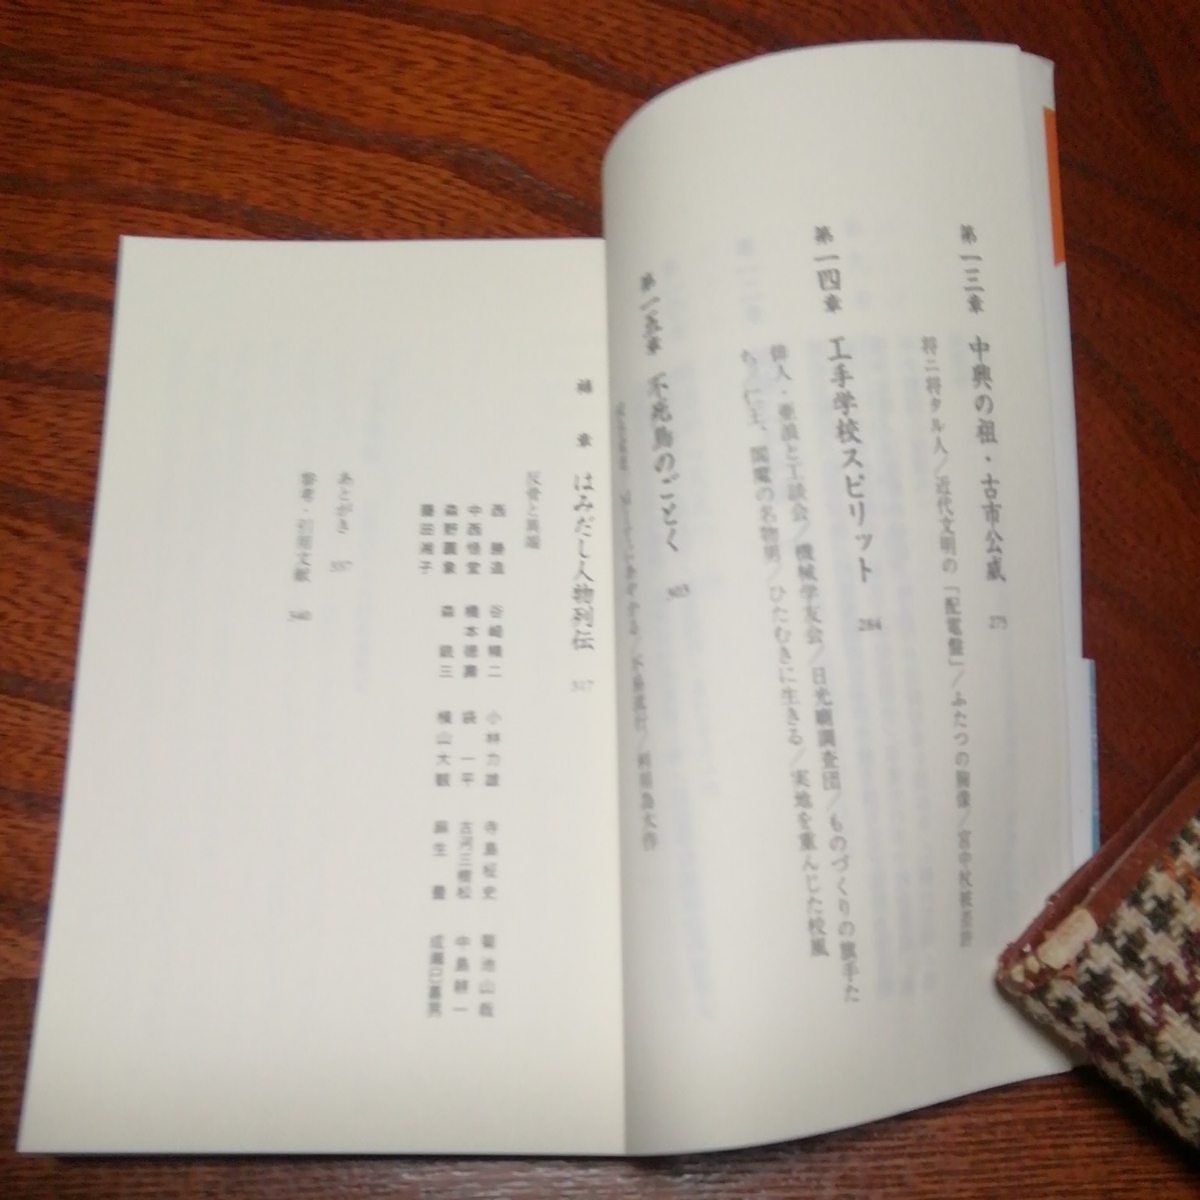 第一三章 中興の祖・古市公威 275
将ニ将タル人/近代文明の「配電盤」/ふたつの胸像/宮中杖被差許
第一四章 工手学校スピリット 284
俳人・亜浪と工談会/機械学友会/日光廟調査団/ものづくりの旗手た
ち/仁王、閻魔の名物男/ひたむきに生きる/実地を重んじた校風
第一五章 不死鳥のごとく 303
補章 はみだし人物列伝 317
反骨と異端
西勝造 谷崎精二 小林力雄 寺島柾史 菊池山哉
中西悟堂 橋本徳壽 袋一平 古河三樹松 中島耕一
森銃三 横山大観 麻生豊
藤田湘子
あとがき 337
参考・引用文献 340